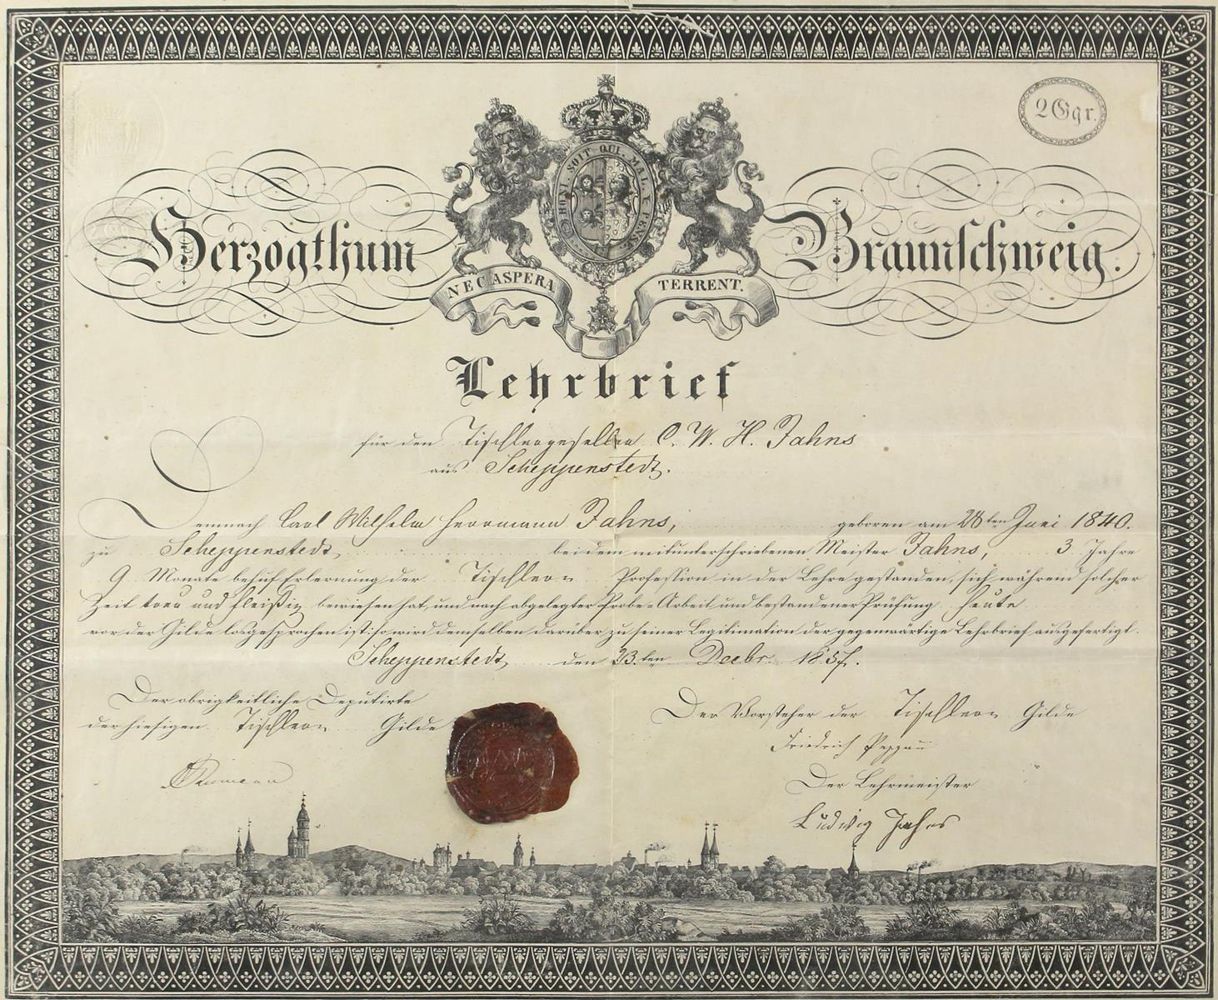 2 Ggr.
HONI. SOIT. QUI. MAL. Y. PENSE.
Herzogthum Braunschweig.
NEC ASPERA TERRENT.
Lehrbrief
für den Tischlergesellen C. W. H. Jahns
aus Scheppenstedt.
Demnach Carl Wilhelm Herrmann Jahns, geboren am 28ten Juni 1840.
zu Scheppenstedt, bei dem mitunterschriebenen Meister Jahns, 3 Jahre
9 Monate behuf Erlernung der Tischler Profession in der Lehre gestanden, sich während solcher
Zeit treu und fleißig bewiesen hat, und nach abgelegter Probe-Arbeit und bestandener Prüfung heute
vor der Gilde losgesprochen ist: so wird demselben darüber zu seiner Legitimation der gegenwärtige Lehrbrief ausgefertigt.
Scheppenstedt, den 13.ten Decbr. 1857.
Der obrigkeitliche Deputirte
der hiesigen Tischler Gilde
Der Vorsteher der Tischler Gilde
Friedrich
Der Lehrmeister
Ludwig Jahns